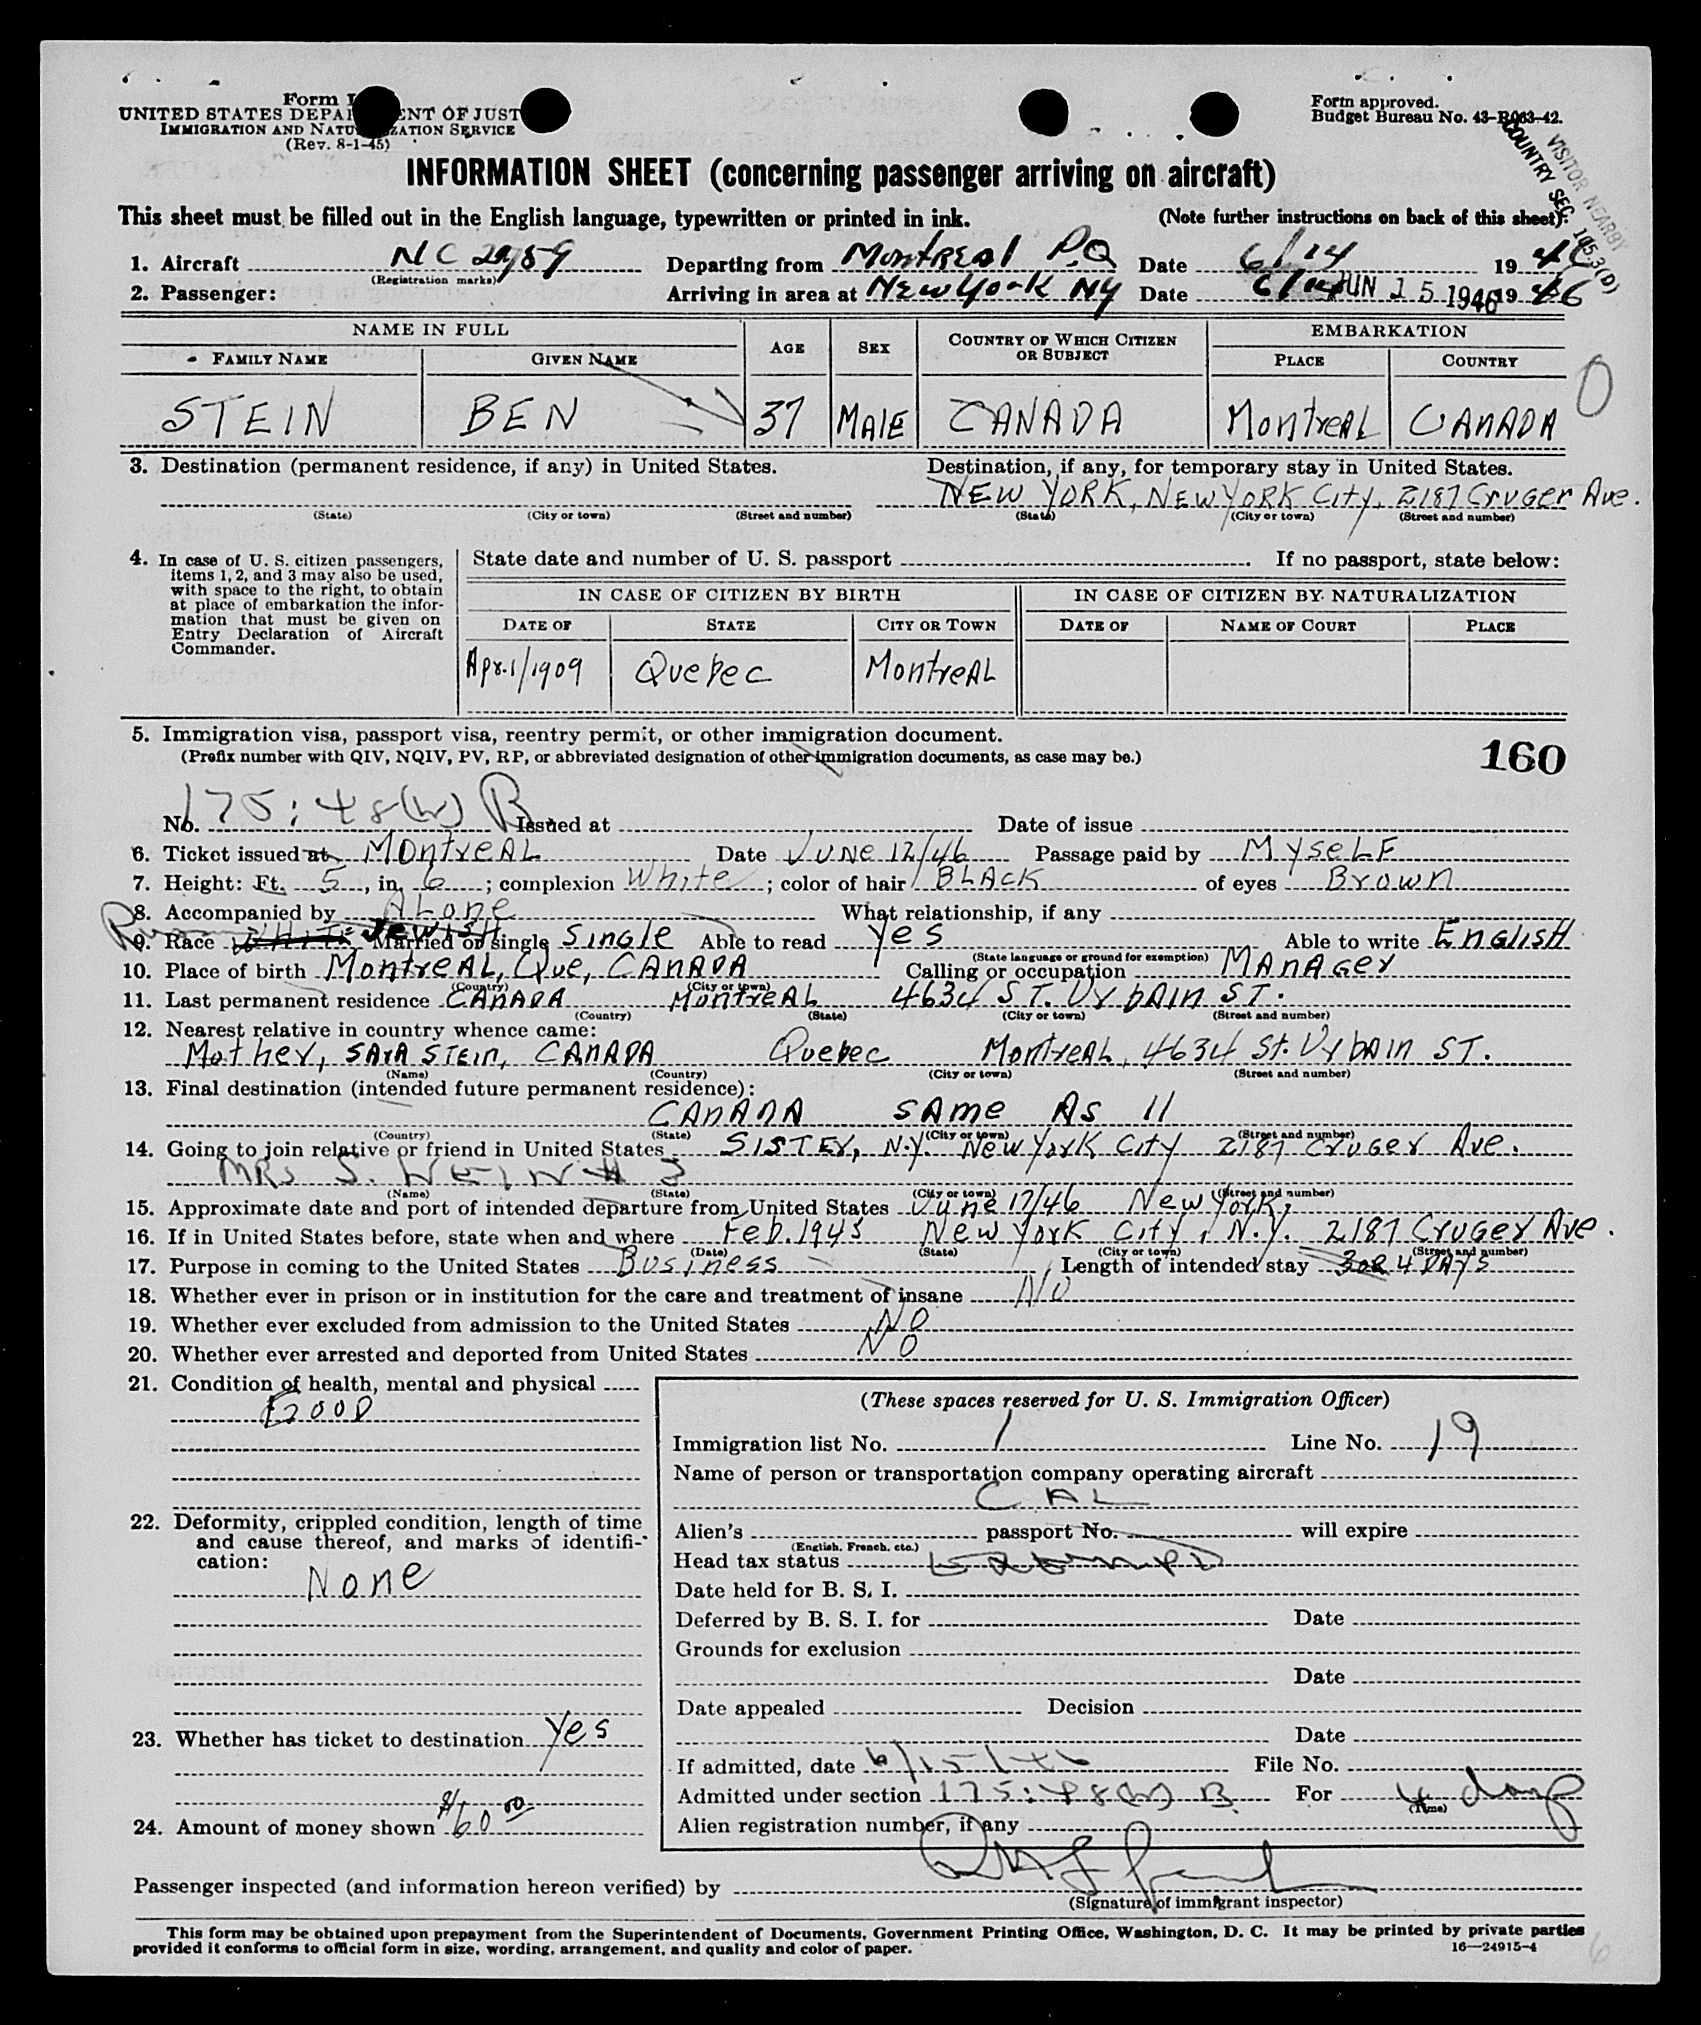 Form I
UNITED STATES DEPA ENT OF JUST
IMMIGRATION AND NATU ZATION SERVICE
(Rev. 8-1-45)
Form approved.
Budget Bureau No. 43-R063-42.
VISITOR NEARBY
COUNTRY SEC. 105.3(D)
INFORMATION SHEET (concerning passenger arriving on aircraft)
This sheet must be filled out in the English language, typewritten or printed in ink. (Note further instructions on back of this sheet).
1. Aircraft NC Departing from Montreal P.Q Date 6/14 19 46
(Registration marks)
2. Passenger: Arriving in area at New York NY Date 6/14 JUN 15 1946 19 46
NAME IN FULL AGE SEX COUNTRY OF WHICH CITIZEN OR SUBJECT EMBARKATION
FAMILY NAME GIVEN NAME PLACE COUNTRY
STEIN BEN 37 MALE CANADA MontreAL CANADA 0
3. Destination (permanent residence, if any) in United States. Destination, if any, for temporary stay in United States.
NEW YORK, NEW YORK City, 2187 CruGer Ave.
(State) (City or town) (Street and number) (State) (City or town) (Street and number)
4. In case of U. S. citizen passengers, items 1, 2, and 3 may also be used, with space to the right, to obtain at place of embarkation the information that must be given on Entry Declaration of Aircraft Commander.
State date and number of U. S. passport . If no passport, state below:
IN CASE OF CITIZEN BY BIRTH IN CASE OF CITIZEN BY NATURALIZATION
DATE OF STATE CITY OR TOWN DATE OF NAME OF COURT PLACE
Apr.1/1909 Quebec MontreAL
5. Immigration visa, passport visa, reentry permit, or other immigration document.
(Prefix number with QIV, NQIV, PV, RP, or abbreviated designation of other immigration documents, as case may be.)
160
No. 175:48(b) B Issued at Date of issue
6. Ticket issued at MontreAL Date JUNE 12/46 Passage paid by MyseLF
7. Height: Ft. 5, in. 6; complexion White; color of hair BLACK of eyes Brown
8. Accompanied by ALone What relationship, if any
9. Race JEWISH Married or single Single Able to read Yes Able to write EnGLISH
(State language or ground for exemption)
10. Place of birth MontreAL, Que, CANADA Calling or occupation MAnAGer
(Country) (City or town)
11. Last permanent residence CANADA MontreAL 4634 ST. UrbAIn ST.
(Country) (State) (City or town) (Street and number)
12. Nearest relative in country whence came:
Mother, SArA STEIn, CANADA Quebec MontreAL, 4634 St. UrbAIn ST.
(Name) (Country) (City or town) (Street and number)
13. Final destination (intended future permanent residence):
CANADA SAme As 11
(Country) (State) (City or town) (Street and number)
14. Going to join relative or friend in United States SISTEr, N.Y. New York City 2187 CruGer Ave.
MRS S.
(Name) (State) (City or town) (Street and number)
15. Approximate date and port of intended departure from United States June 17/46 New York,
16. If in United States before, state when and where Feb. 1945 New York City, N.Y. 2187 CruGer Ave.
(Date) (State) (City or town) (Street and number)
17. Purpose in coming to the United States Business Length of intended stay 3 OR 4 DAys
18. Whether ever in prison or in institution for the care and treatment of insane NO
19. Whether ever excluded from admission to the United States NO
20. Whether ever arrested and deported from United States NO
21. Condition of health, mental and physical
GOOD
22. Deformity, crippled condition, length of time and cause thereof, and marks of identification:
None
23. Whether has ticket to destination Yes
24. Amount of money shown $60 00
(These spaces reserved for U. S. Immigration Officer)
Immigration list No. 1 Line No. 19
Name of person or transportation company operating aircraft
CAL
Alien's passport No. will expire
(English, French, etc.)
Head tax status
Date held for B. S. I.
Deferred by B. S. I. for Date
Grounds for exclusion
Date
Date appealed Decision
Date
If admitted, date 6/15/46 File No.
Admitted under section 175:48(b) B For 4 days
(Time)
Alien registration number, if any
Passenger inspected (and information hereon verified) by
(Signature of immigrant inspector)
This form may be obtained upon prepayment from the Superintendent of Documents, Government Printing Office, Washington, D. C. It may be printed by private parties
provided it conforms to official form in size, wording, arrangement, and quality and color of paper.
16—24915-4
6